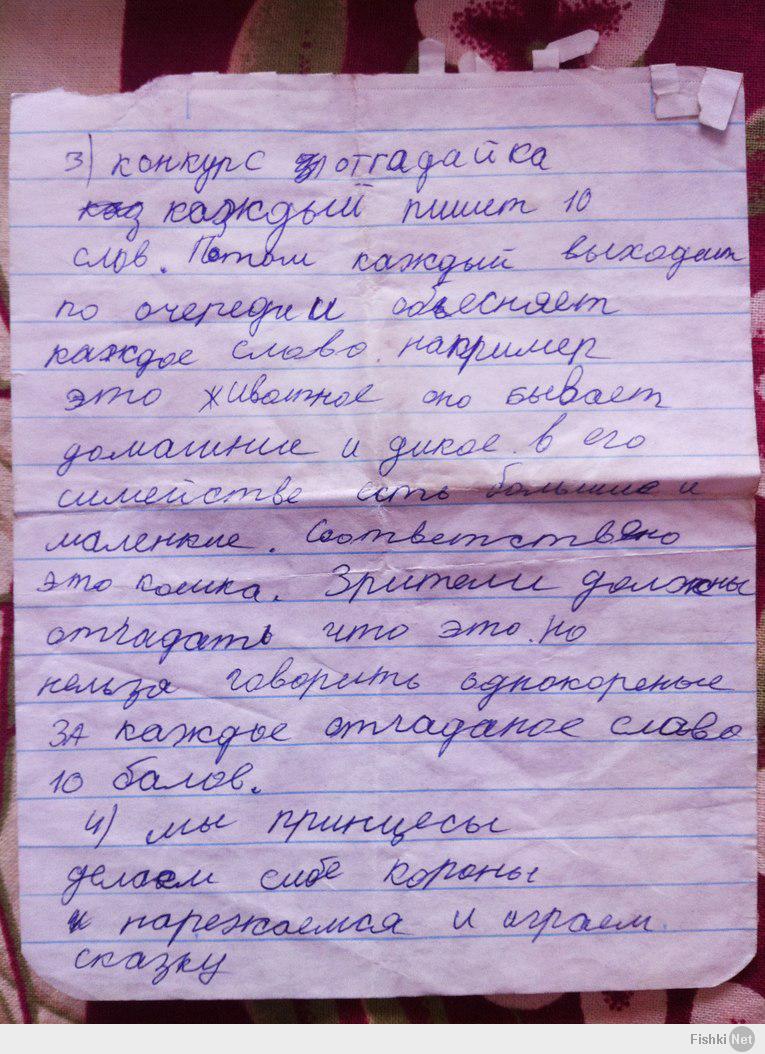 3) конкурс отгадайка
каждый пишет 10
слов. Потом каждый выходит
по очереди и объесняет
каждое слово. например
это животное оно бывает
домашние и дикое. в его
симействе есть большие и
маленкие. Соответствено
это кошка. Зрители должны
отгадать что это. но
нельзя говорить однокореные
ЗА каждое отгаданое слово
10 балов.
4) мы принцесы
делаем сибе короны
и нарежаемся и играем
сказку
Fishki Net